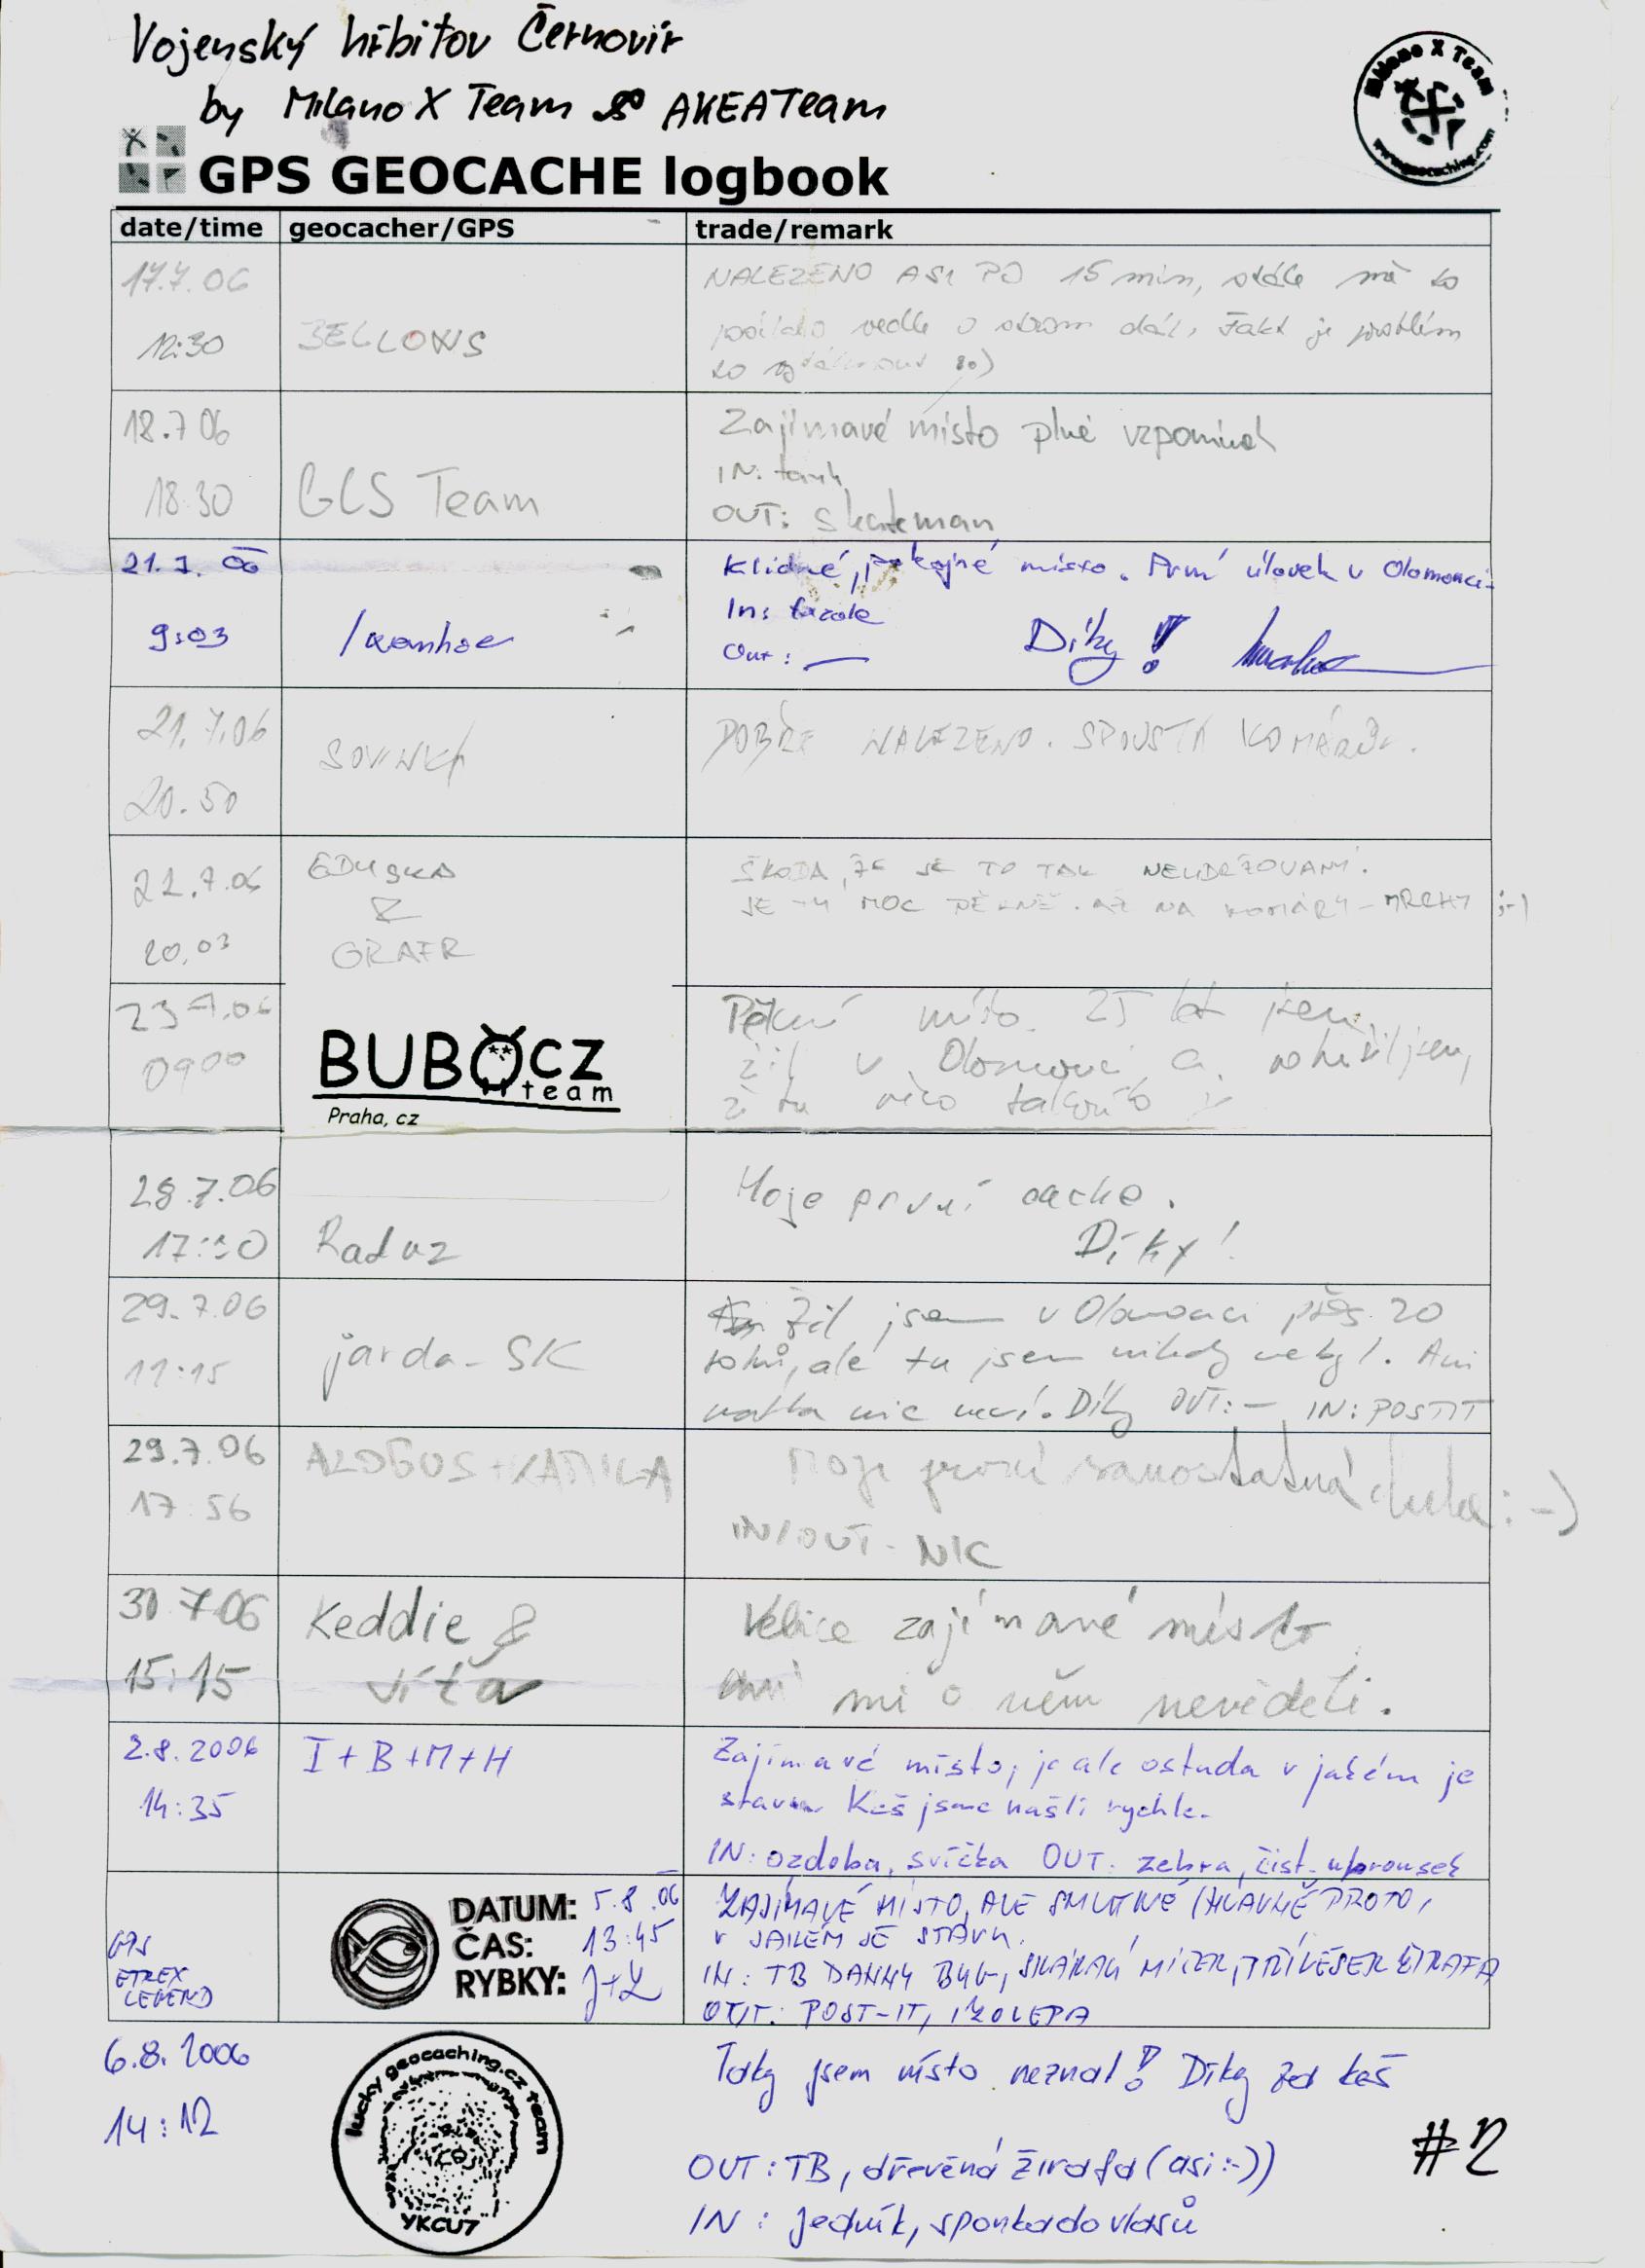 Vojenský hřbitov Černovír
by Milano X Team & AKEATeam
Milano X Team
www.geocaching.com
GPS GEOCACHE logbook
date/time geocacher/GPS trade/remark
17.7.06 NALEZENO ASI PO 15 min, stále mě to
vedle o strom dál, Fakt je problém
12:30 BELLOWS
to 80)
18.7 06 Zajímavé místo plné vzpomínek
IN: tank
18:30 GCS Team
OUT: skateman
21.7.06 Klidné, pokojné místo. První úlovek v Olomouci.
In: fazole
9:03 Ivanhoe Díky!
Out: —
21.7.06 DOBŘE NALEZENO. SPOUSTA KOMÁRŮ.
20.50 SOVINKA
22.7.06 EDUSKA ŠKODA, ŽE JE TO TAK NEUDRŽOVANÝ.
& JE TU MOC PĚKNĚ. AŽ NA KOMÁRY - MRCHY ;-)
20,03 GRAFR
23.7.06 Pěkné místo. 25 let jsem
0900 žil v Olomouci a netušil jsem,
že tu něco takového
BUBOCZ
team
Praha, cz
28.7.06 Moje první cache.
17:30 Raduz Díky!
29.7.06 Žil jsem v Olomouci přes 20
11:15 jarda-SK roků, ale tu jsem nikdy nebyl. Ani
matka nic neví. Díky OUT: — IN: POSTIT
29.7.06 ALDGOS + KAMILA Moje první samostatná :-)
17:56 IN/OUT - NIC
30.7.06 Keddie & Velice zajímavé místo
15:15 Víťa ani mi o něm nevěděli.
2.8.2006 I+B+M+H Zajímavé místo, je ale ostuda v jakém je
14:35 stavu. Keš jsme našli rychle.
IN: ozdoba, svíčka OUT: zebra, čist. ubrousek
DATUM: 5.8.06 ZAJÍMAVÉ MÍSTO, ALE SMUTNÉ (HLAVNĚ PROTO,
ČAS: 13:45 V JAKÉM JE STAVU.
GPS ETREX LEGEND RYBKY: J+L IN: TB DANNY BUG, SKÁKACÍ MÍČEK, PŘÍVĚSEK ŽIRAFA
OUT: POST-IT, IZOLEPA
6.8.2006 Taky jsem místo neznal! Díky za keš
14:12
lucky geocaching.cz team
YKCU7
#2
OUT: TB, dřevěná žirafa (asi :-))
IN: jedník, sponka do vlasů